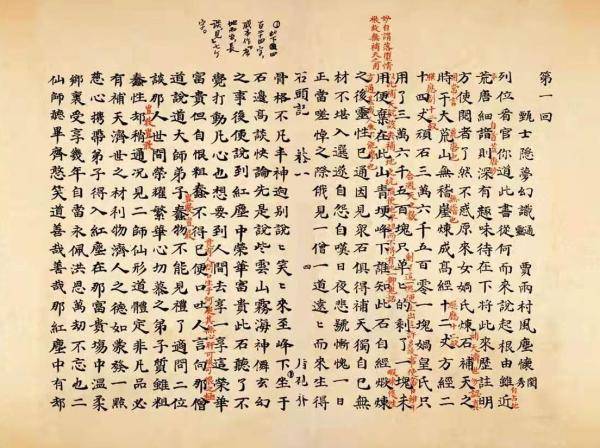 妙自謂落墮情
根故無補天之用
第一回
甄士隱夢幻識通靈 賈雨村風塵懷閨秀
列位看官你道此書從何而來說起根由雖近
荒唐細諳則深有趣味待在下將此來歷註明
方使閱者了然不惑原來女媧氏煉石補天之
時于大荒山無稽崖煉成高經十二丈方經二
十四丈頑石三萬六千五百零一塊媧皇氏只
用了三萬六千五百塊只單々的剩了一塊未
用便棄在此山青埂峰下誰知此石自經煅煉
之後靈性已通因見眾石俱得補天獨自己無
材不堪入選遂自怨自嘆日夜悲號慚愧一日
正當嗟悼之際俄見一僧一道遠々而來生得
石頭記 卷一 四
骨格不凡丰神迥別說々笑々來至峰下坐于
石邊高談快論先是說些雲山霧海神仙玄幻
之事後便說到紅塵中榮華富貴此石聽了不
覺打動凡心也想要到人間去享一享這榮華
富貴但自恨粗蠢不得已便口吐人言向那僧
道說道大師弟子蠢物不能見禮了適問二位
談那人世間榮耀繁華心切慕之弟子質雖粗
蠢性却稍通况見二師仙形道體定非凡品必
有補天濟世之材利物濟人之德如蒙發一點
慈心携帶弟子得入紅塵在那富貴場中溫柔
鄉裏受享幾年自當永佩洪恩萬劫不忘也二
仙師聽畢齊憨笑道善哉善哉那紅塵中有却